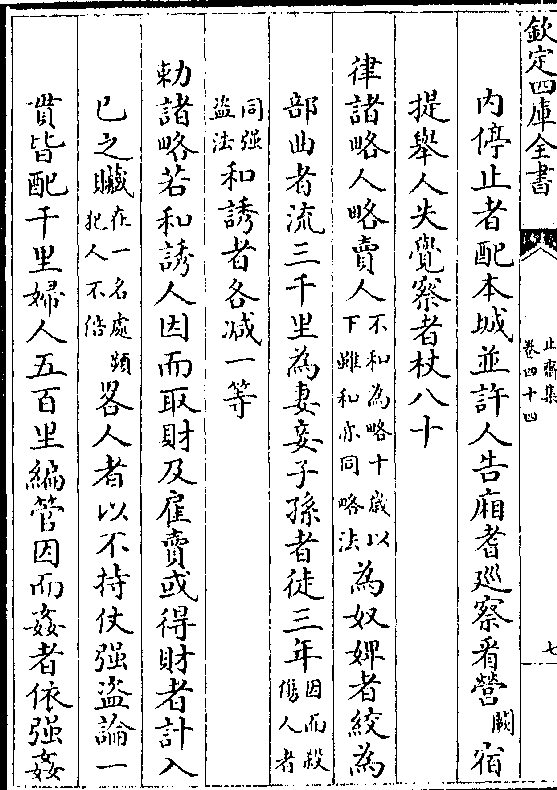 欽定四庫全書
止齋集
卷四十四
七
內停止者配本城並許人告廂耆廵察看營闕宿
提舉人失覺察者杖八十
律諸略人略賣人不和為略十歲以下雖和亦同略法為奴婢者絞為
部曲者流三千里為妻妾子孫者徒三年因而殺傷人者
同强盜法和誘者各减一等
勅諸略若和誘人因而取財及雇賣或得財者計入
已之贓在一名處頻犯人不倍畧人者以不持仗强盜論一
貫皆配千里婦人五百里編管因而姦者依强姦